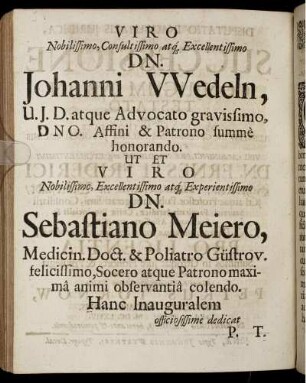 VIRO
Nobilissimo, Consultissimo atq, Excellentissimo
DN.
Johanni VVedeln,
U. J. D. atque Advocato gravissimo,
DNO. Affini & Patrono summè
honorando.
UT ET
VIRO
Nobilissimo, Excellentissimo atq, Experientissimo
DN.
Sebastiano Meiero,
Medicin. Doct. & Poliatro Güstrov.
felicissimo, Socero atque Patrono maxi-
mâ animi observantiâ colendo.
Hanc Inauguralem
officiosissimè dedicat
P. T.